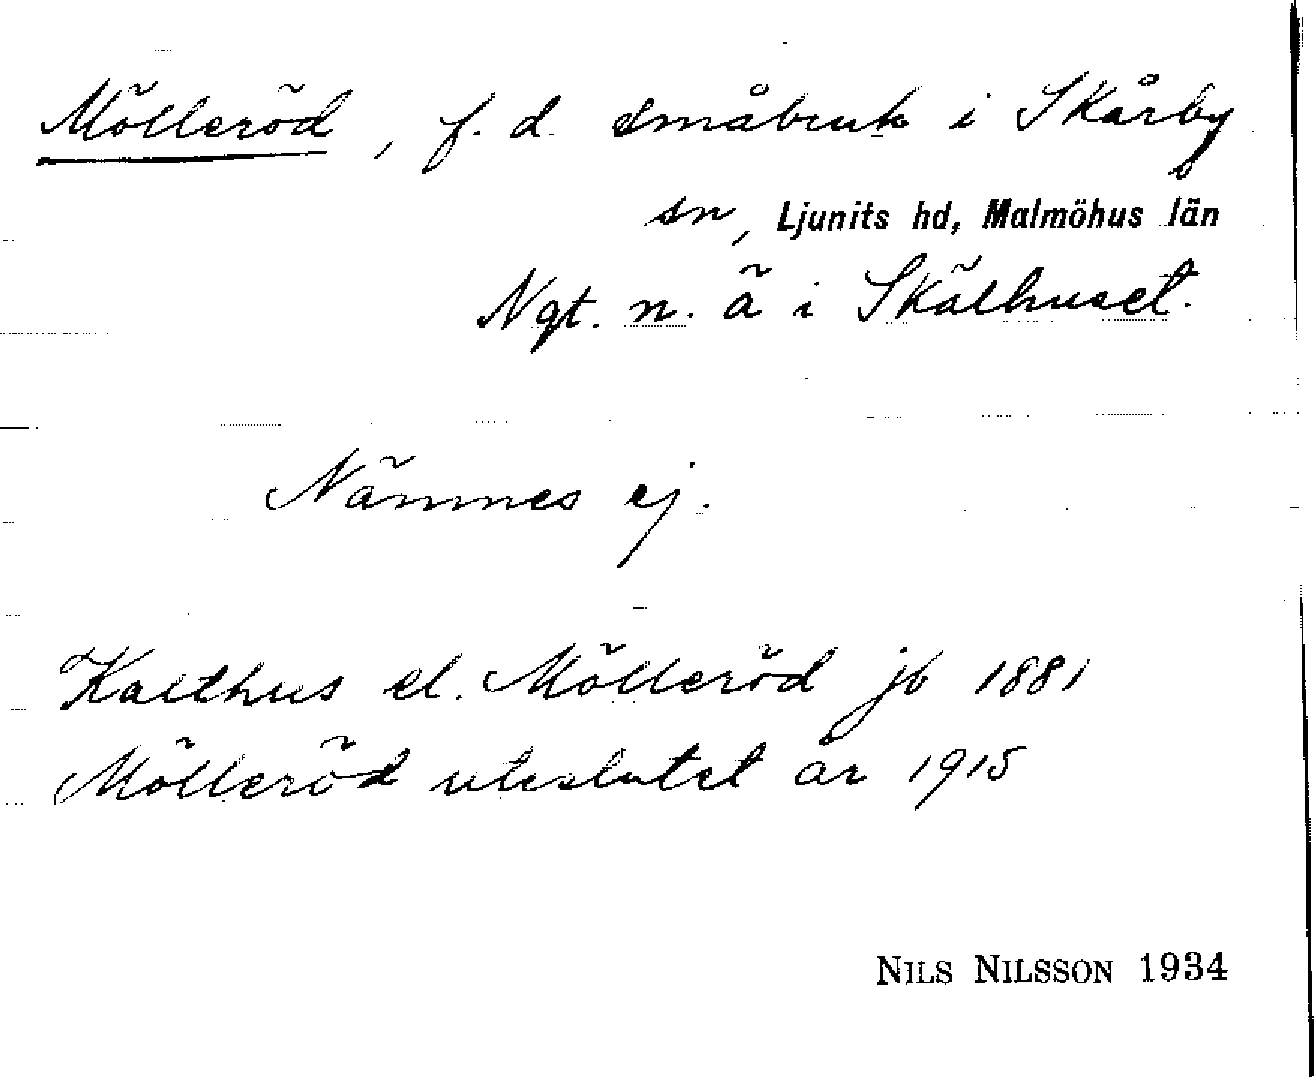 Mölleröd, f. d. småbruk i Skårby
sn, Ljunits hd, Malmöhus län
Ngt. n. ä i Skälhuset.
Nämnes ej.
Kalthus el. Mölleröd jb 1881
Mölleröd uteslutet år 1915
NILS NILSSON 1934